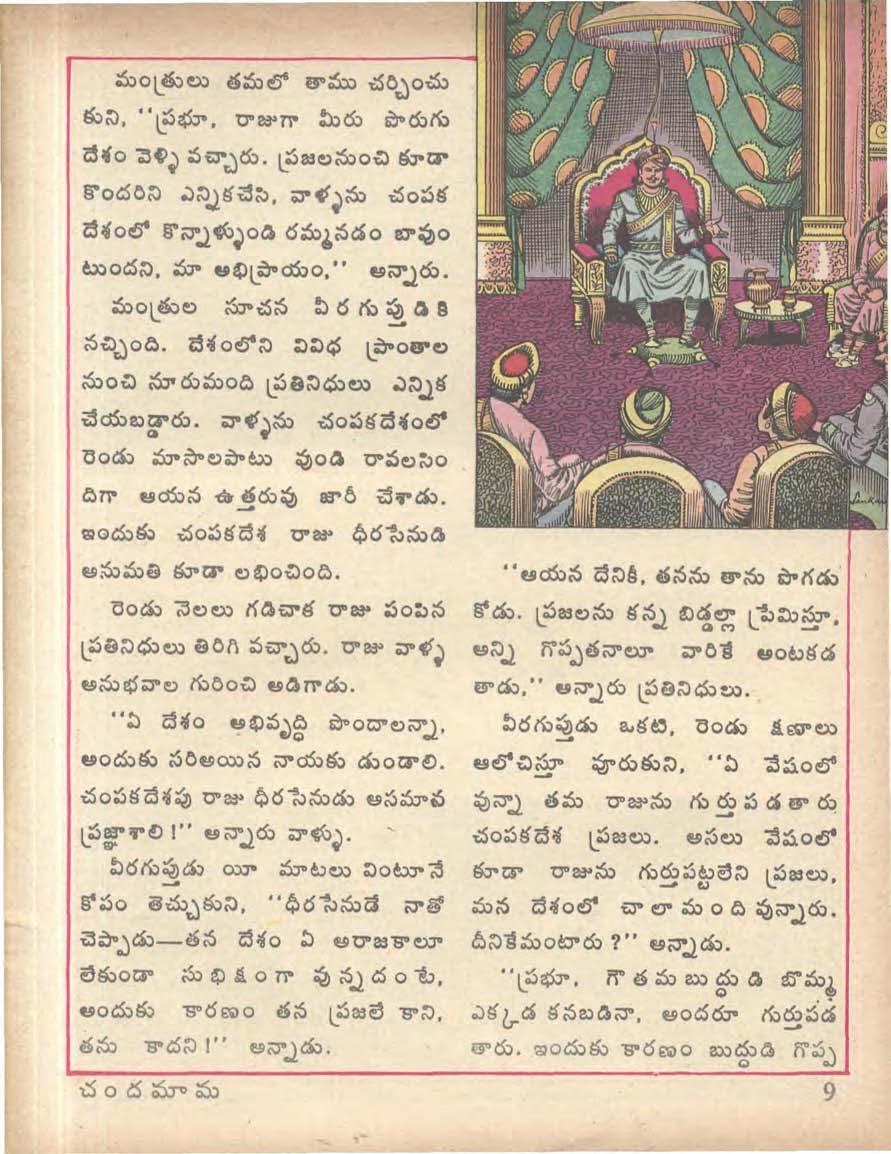 మంత్రులు తమలో తాము చర్చించు
కుని, ‘‘ప్రభూ, రాజుగా మీరు పొరుగు
దేశం వెళ్ళి వచ్చారు. ప్రజలనుంచి కూడా
కొందరిని ఎన్నికచేసి, వాళ్ళను చంపక
దేశంలో కొన్నాళ్ళుండి రమ్మనడం బావుం
టుందని, మా అభిప్రాయం,’’ అన్నారు.
మంత్రుల సూచన వీరగుప్తుడికి
నచ్చింది. దేశంలోని వివిధ ప్రాంతాల
నుంచి నూరుమంది ప్రతినిధులు ఎన్నిక
చేయబడ్డారు. వాళ్ళను చంపకదేశంలో
రెండు మాసాలపాటు వుండి రావలసిం
దిగా ఆయన ఉత్తరువు జారీ చేశాడు.
ఇందుకు చంపకదేశ రాజు ధీరసేనుడి
అనుమతి కూడా లభించింది.
రెండు నెలలు గడిచాక రాజు పంపిన
ప్రతినిధులు తిరిగి వచ్చారు. రాజు వాళ్ళ
అనుభవాల గురించి అడిగాడు.
‘‘ఏ దేశం అభివృద్ధి పొందాలన్నా,
అందుకు సరిఅయిన నాయకు డుండాలి.
చంపకదేశపు రాజు ధీరసేనుడు అసమాన
ప్రజ్ఞాశాలి!’’ అన్నారు వాళ్ళు.
వీరగుప్తుడు యీ మాటలు వింటూనే
కోపం తెచ్చుకుని, ‘‘ధీరసేనుడే నాతో
చెప్పాడు—తన దేశం ఏ అరాజకాలూ
లేకుండా సుభిక్షంగా వున్నదంటే,
అందుకు కారణం తన ప్రజలే కాని,
తను కాదని!’’ అన్నాడు.
‘‘ఆయన దేనికీ, తనను తాను పొగడు
కోడు. ప్రజలను కన్న బిడ్డల్లా ప్రేమిస్తూ,
అన్ని గొప్పతనాలూ వారికే అంటకడ
తాడు,’’ అన్నారు ప్రతినిధులు.
వీరగుప్తుడు ఒకటి, రెండు క్షణాలు
ఆలోచిస్తూ వూరుకుని, ‘‘ఏ వేషంలో
వున్నా తమ రాజును గుర్తుపడతారు
చంపకదేశ ప్రజలు. అసలు వేషంలో
కూడా రాజును గుర్తుపట్టలేని ప్రజలు,
మన దేశంలో చాలామంది వున్నారు.
దీనికేమంటారు?’’ అన్నాడు.
‘‘ప్రభూ, గౌతమబుద్ధుడి బొమ్మ
ఎక్కడ కనబడినా, అందరూ గుర్తుపడ
తారు. ఇందుకు కారణం బుద్ధుడి గొప్ప
చందమామ
9